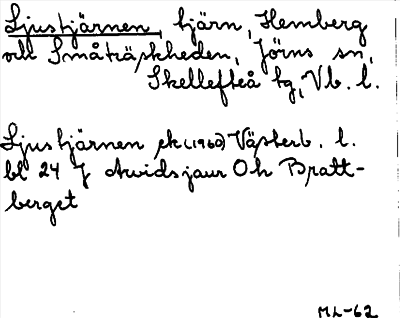 Ljustjärnen, tjärn, Hemberg
till Småträskheden, Jörns sn,
Skellefteå tg, Vb. l.
Ljustjärnen ek (1960) Västerb. l.
bl 24 J Arvidsjaur Oh Bratt-
berget
ML-62